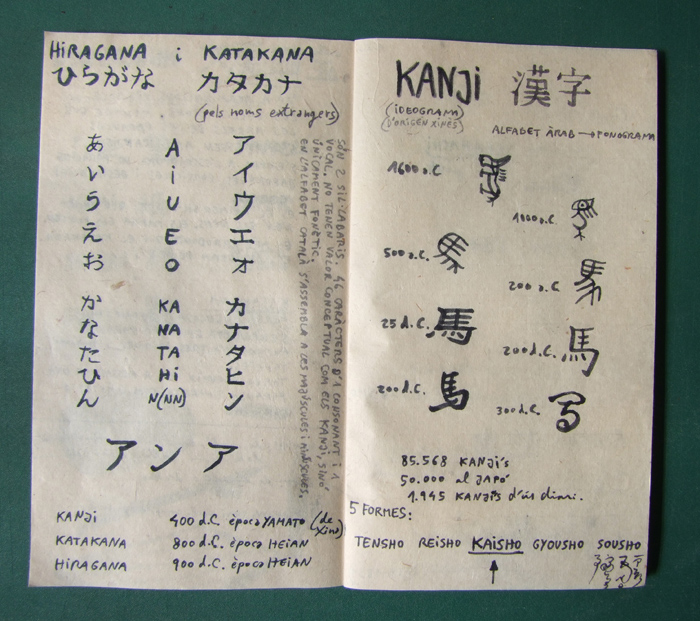 HIRAGANA i KATAKANA
ひらがな カタカナ
(pels noms extrangers)
あ A ア
い i イ
う U ウ
え E エ
お O オ
か KA カ
な NA ナ
た TA タ
ひ Hi ヒ
ん N(NN) ン
アンア
SÓN 2 SIL·LABARIS. 46 CARÀCTERS D'1 CONSONANT I 1
VOCAL. NO TENEN VALOR CONCEPTUAL COM ELS KANJI, SINÓ
ÚNICAMENT FONÈTIC.
EN L'ALFABET CATALÀ S'ASSEMBLA A LES MAJÚSCULES I MINÚSCULES.
KANJi 400 d.C. època YAMATO (de Xina)
KATAKANA 800 d.C. època HEIAN
HIRAGANA 900 d.C. època HEIAN
KANJi 漢字
(IDEOGRAMA)
(D'ORIGEN XINÈS)
ALFABET ÀRAB → FONOGRAMA
1600 a.C
1000 a.C.
500 a.C. 馬
200 a.C. 馬
25 d.C. 馬
200 d.C. 馬
200 d.C. 馬
300 d.C.
85.568 KANJi's
50.000 al JAPÓ
1.945 KANJi's d'ús diari.
5 FORMES:
TENSHO REISHO KAISHO GYOUSHO SOUSHO